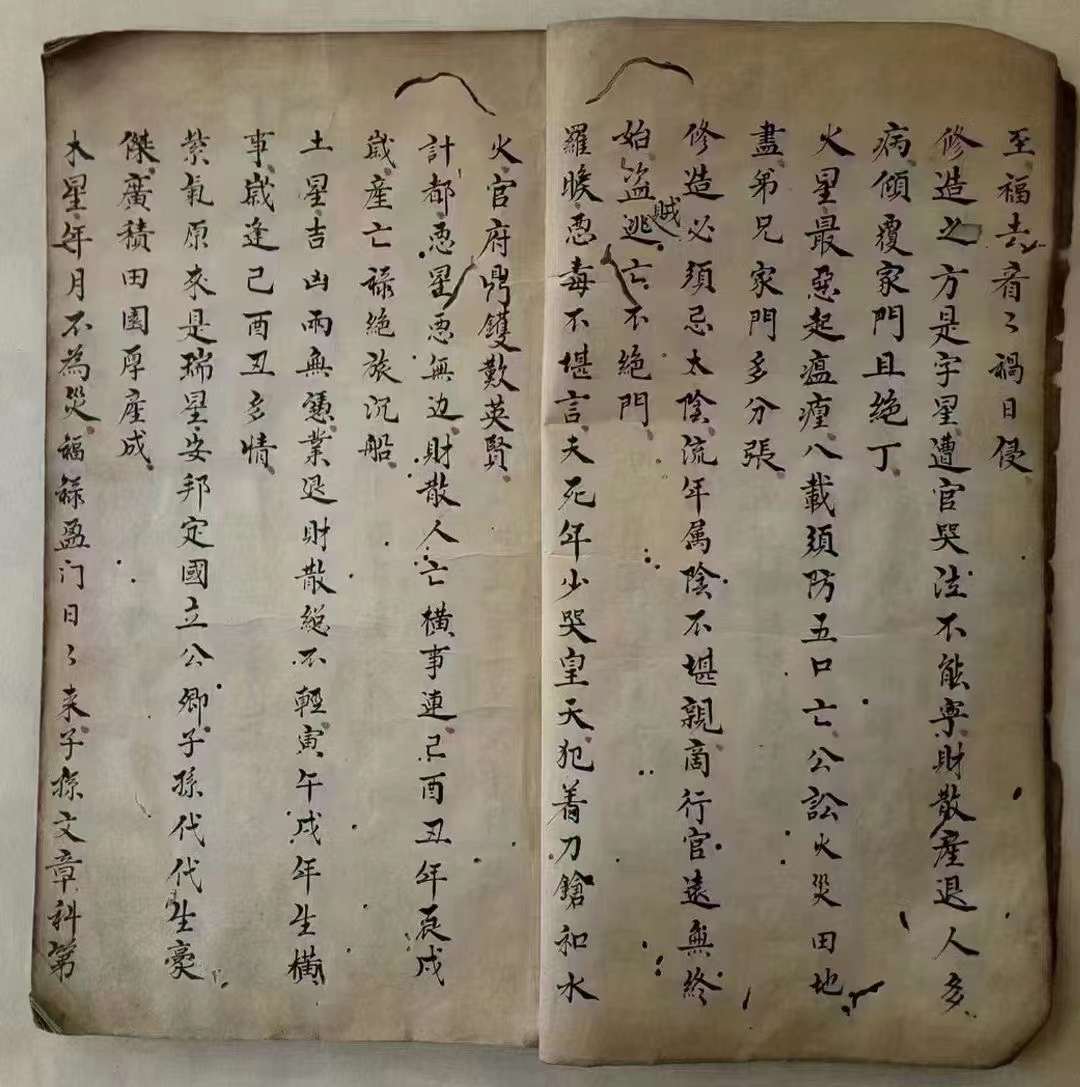 至福去看〻禍日侵
修造之方是字星遭官哭泣不能寧財散産退人多
病傾覆家門且絶丁
火星最惡起瘟瘽八載須防五口亡公訟火災田地
盡弟兄家門多分張
修造必須忌太陰流年属陰不堪親商行官遠無終
始盗賊逃亡不絶門
羅睺悪毒不堪言夫死年少哭皇天犯着刀鎗和水
火官府鼎鑊歎英賢
計都悪星悪無边財散人亡橫事連己酉丑年辰戌
歲産亡祿絶旅沉船
土星吉凶兩無憑業退財散絕不輕寅午戌年生橫
事歲逢己酉丑多情
紫氣原來是瑞星安邦定國立公卿子孫代代生豪
傑廣積田園厚産成
木星年月不為災福祿盈门日〻来子孫文章科第